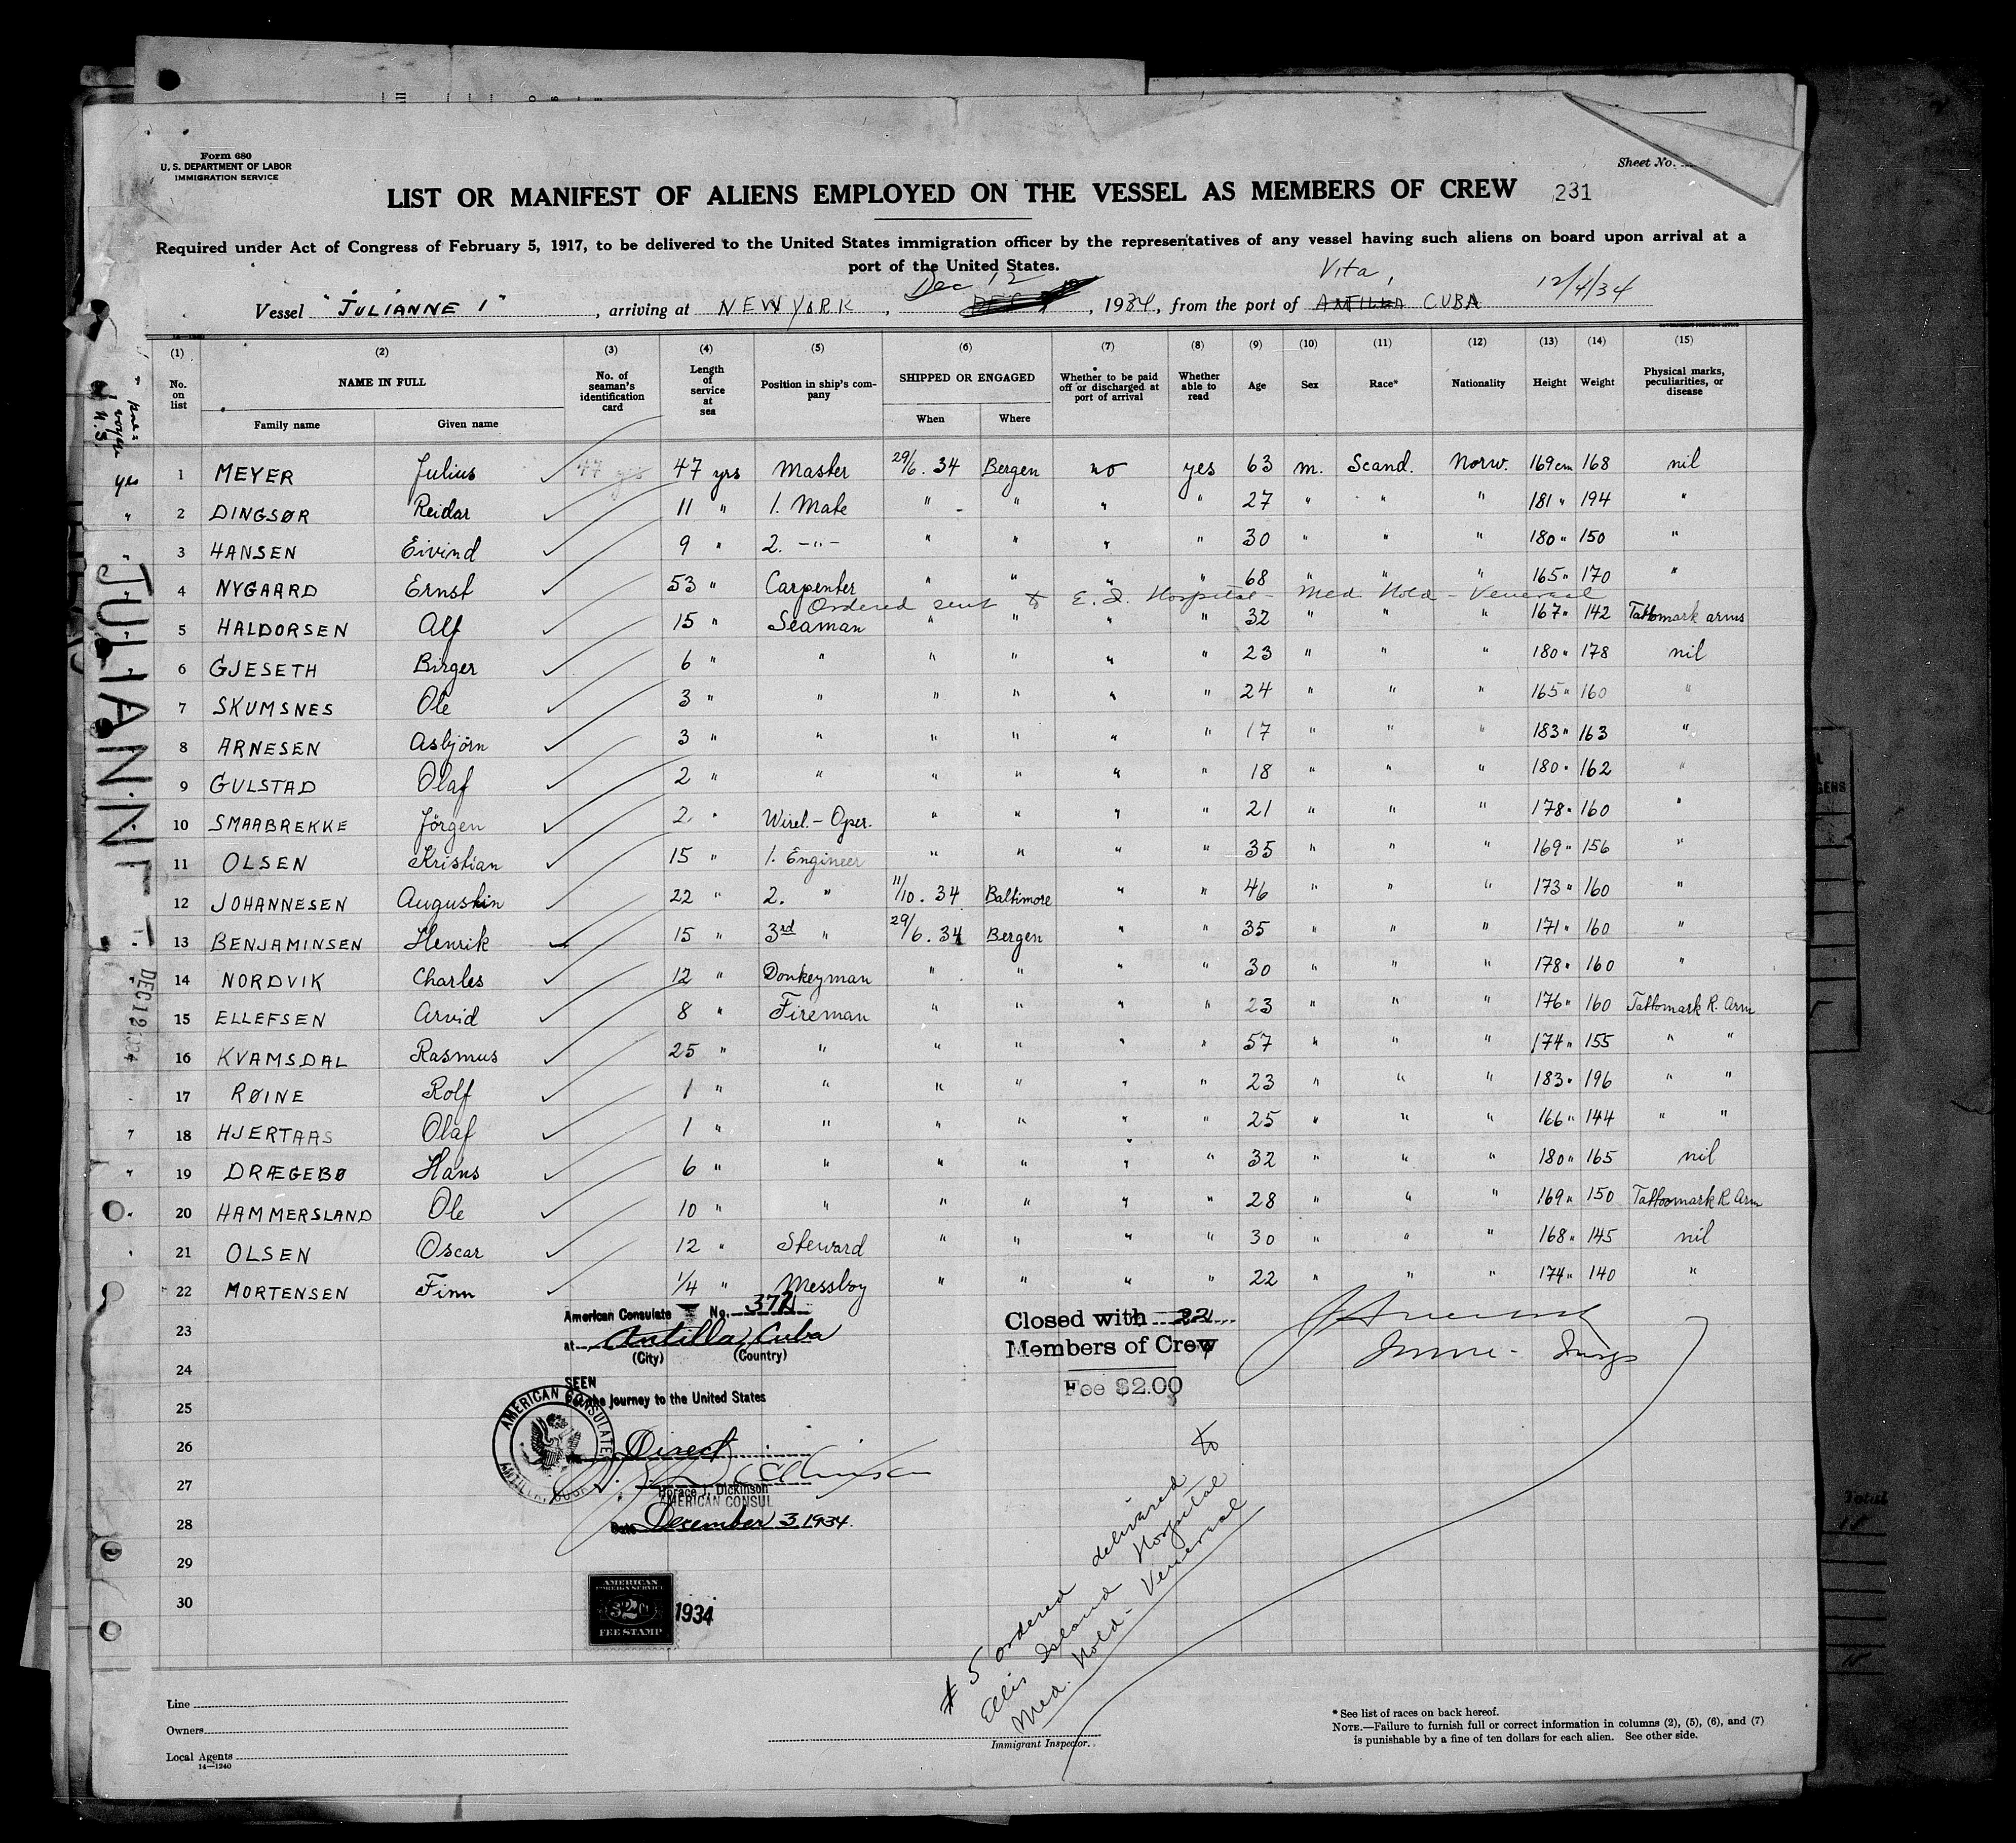 Form 680
U. S. DEPARTMENT OF LABOR
IMMIGRATION SERVICE
Sheet No.
LIST OR MANIFEST OF ALIENS EMPLOYED ON THE VESSEL AS MEMBERS OF CREW 231
Required under Act of Congress of February 5, 1917, to be delivered to the United States immigration officer by the representatives of any vessel having such aliens on board upon arrival at a
port of the United States.
Dec 12 Vita, 12/4/34
Vessel "JULIANNE I", arriving at NEW YORK, DEC, 1934, from the port of ANTILLA CUBA
(1) (2) (3) (4) (5) (6) (7) (8) (9) (10) (11) (12) (13) (14) (15)
No. on list NAME IN FULL No. of seaman's identification card Length of service at sea Position in ship's company SHIPPED OR ENGAGED Whether to be paid off or discharged at port of arrival Whether able to read Age Sex Race* Nationality Height Weight Physical marks, peculiarities, or disease
Family name Given name When Where
1 MEYER Julius ✓ 47 yrs 47 yrs Master 29/6. 34 Bergen no yes 63 m. Scand. Norw. 169cm 168 nil
2 DINGSØR Reidar ✓ 11 " 1. Mate " " " " 27 " " " 181 " 194 "
3 HANSEN Eivind ✓ 9 " 2. -"- " " " " 30 " " " 180 " 150 "
4 NYGAARD Ernst ✓ 53 " Carpenter " " " " 68 " " " 165 " 170 "
Ordered sent to E. I. Hospital - Med Hold - Venereal
5 HALDORSEN Alf ✓ 15 " Seaman " " " " 32 " " " 167 " 142 Tattomark arms
6 GJESETH Birger ✓ 6 " " " " " " 23 " " " 180 " 178 nil
7 SKUMSNES Ole ✓ 3 " " " " " " 24 " " " 165 " 160 "
8 ARNESEN Asbjörn ✓ 3 " " " " " " 17 " " " 183 " 163 "
9 GULSTAD Olaf ✓ 2 " " " " " " 18 " " " 180 " 162 "
10 SMAABREKKE Jörgen ✓ 2 " Wirel.-Oper. " " " " 21 " " " 178 " 160 "
11 OLSEN Kristian ✓ 15 " 1. Engineer " " " " 35 " " " 169 " 156 "
12 JOHANNESEN Augustin ✓ 22 " 2. " 11/10. 34 Baltimore " " 46 " " " 173 " 160 "
13 BENJAMINSEN Henrik ✓ 15 " 3rd " 29/6. 34 Bergen " " 35 " " " 171 " 160 "
14 NORDVIK Charles ✓ 12 " Donkeyman " " " " 30 " " " 178 " 160 "
15 ELLEFSEN Arvid ✓ 8 " Fireman " " " " 23 " " " 176 " 160 Tattomark R. Arm
16 KVAMSDAL Rasmus ✓ 25 " " " " " " 57 " " " 174 " 155 " "
17 RØINE Rolf ✓ 1 " " " " " " 23 " " " 183 " 196 " "
18 HJERTAAS Olaf ✓ 1 " " " " " " 25 " " " 166 " 144 " "
19 DRÆGEBØ Hans ✓ 6 " " " " " " 32 " " " 180 " 165 nil
20 HAMMERSLAND Ole ✓ 10 " " " " " " 28 " " " 169 " 150 Tattoomark R. Arm
21 OLSEN Oscar ✓ 12 " Steward " " " " 30 " " " 168 " 145 nil
22 MORTENSEN Finn ✓ 1/4 " Messboy " " " " 22 " " " 174 " 140 "
23
24
25
26
27
28
29
30
American Consulate No. 371
at Antilla, Cuba
(City) (Country)
SEEN
For the journey to the United States
Direct
Horace J. Dickinson
AMERICAN CONSUL
Date December 3, 1934.
AMERICAN CONSULATE
ANTILLA, CUBA
AMERICAN
FOREIGN SERVICE
$2.00
FEE STAMP
1934
Closed with 22
Members of Crew
Fee $2.00
# 5 ordered delivered to
Ellis Island Hospital
Med. Hold - Venereal
Immigrant Inspector.
Line
Owners
Local Agents
14—1240
* See list of races on back hereof.
NOTE.—Failure to furnish full or correct information in columns (2), (5), (6), and (7)
is punishable by a fine of ten dollars for each alien. See other side.
yes
JULIANNE I.
DEC 12 1934
Total